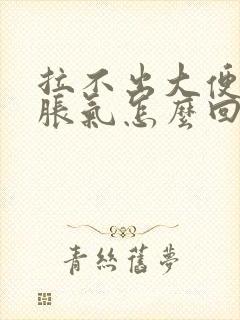 拉不出大便
脹氣怎麼回
青絲舊夢